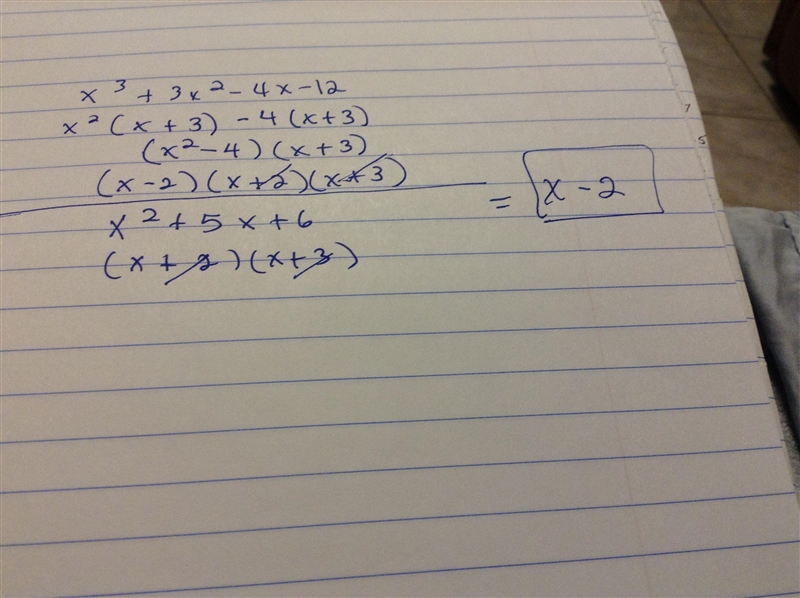 x³ + 3x² - 4x - 12
x² (x + 3) - 4 (x + 3)
(x² - 4) (x + 3)
(x - 2) (x + 2) (x + 3)
= x - 2
x² + 5x + 6
(x + 2) (x + 3)